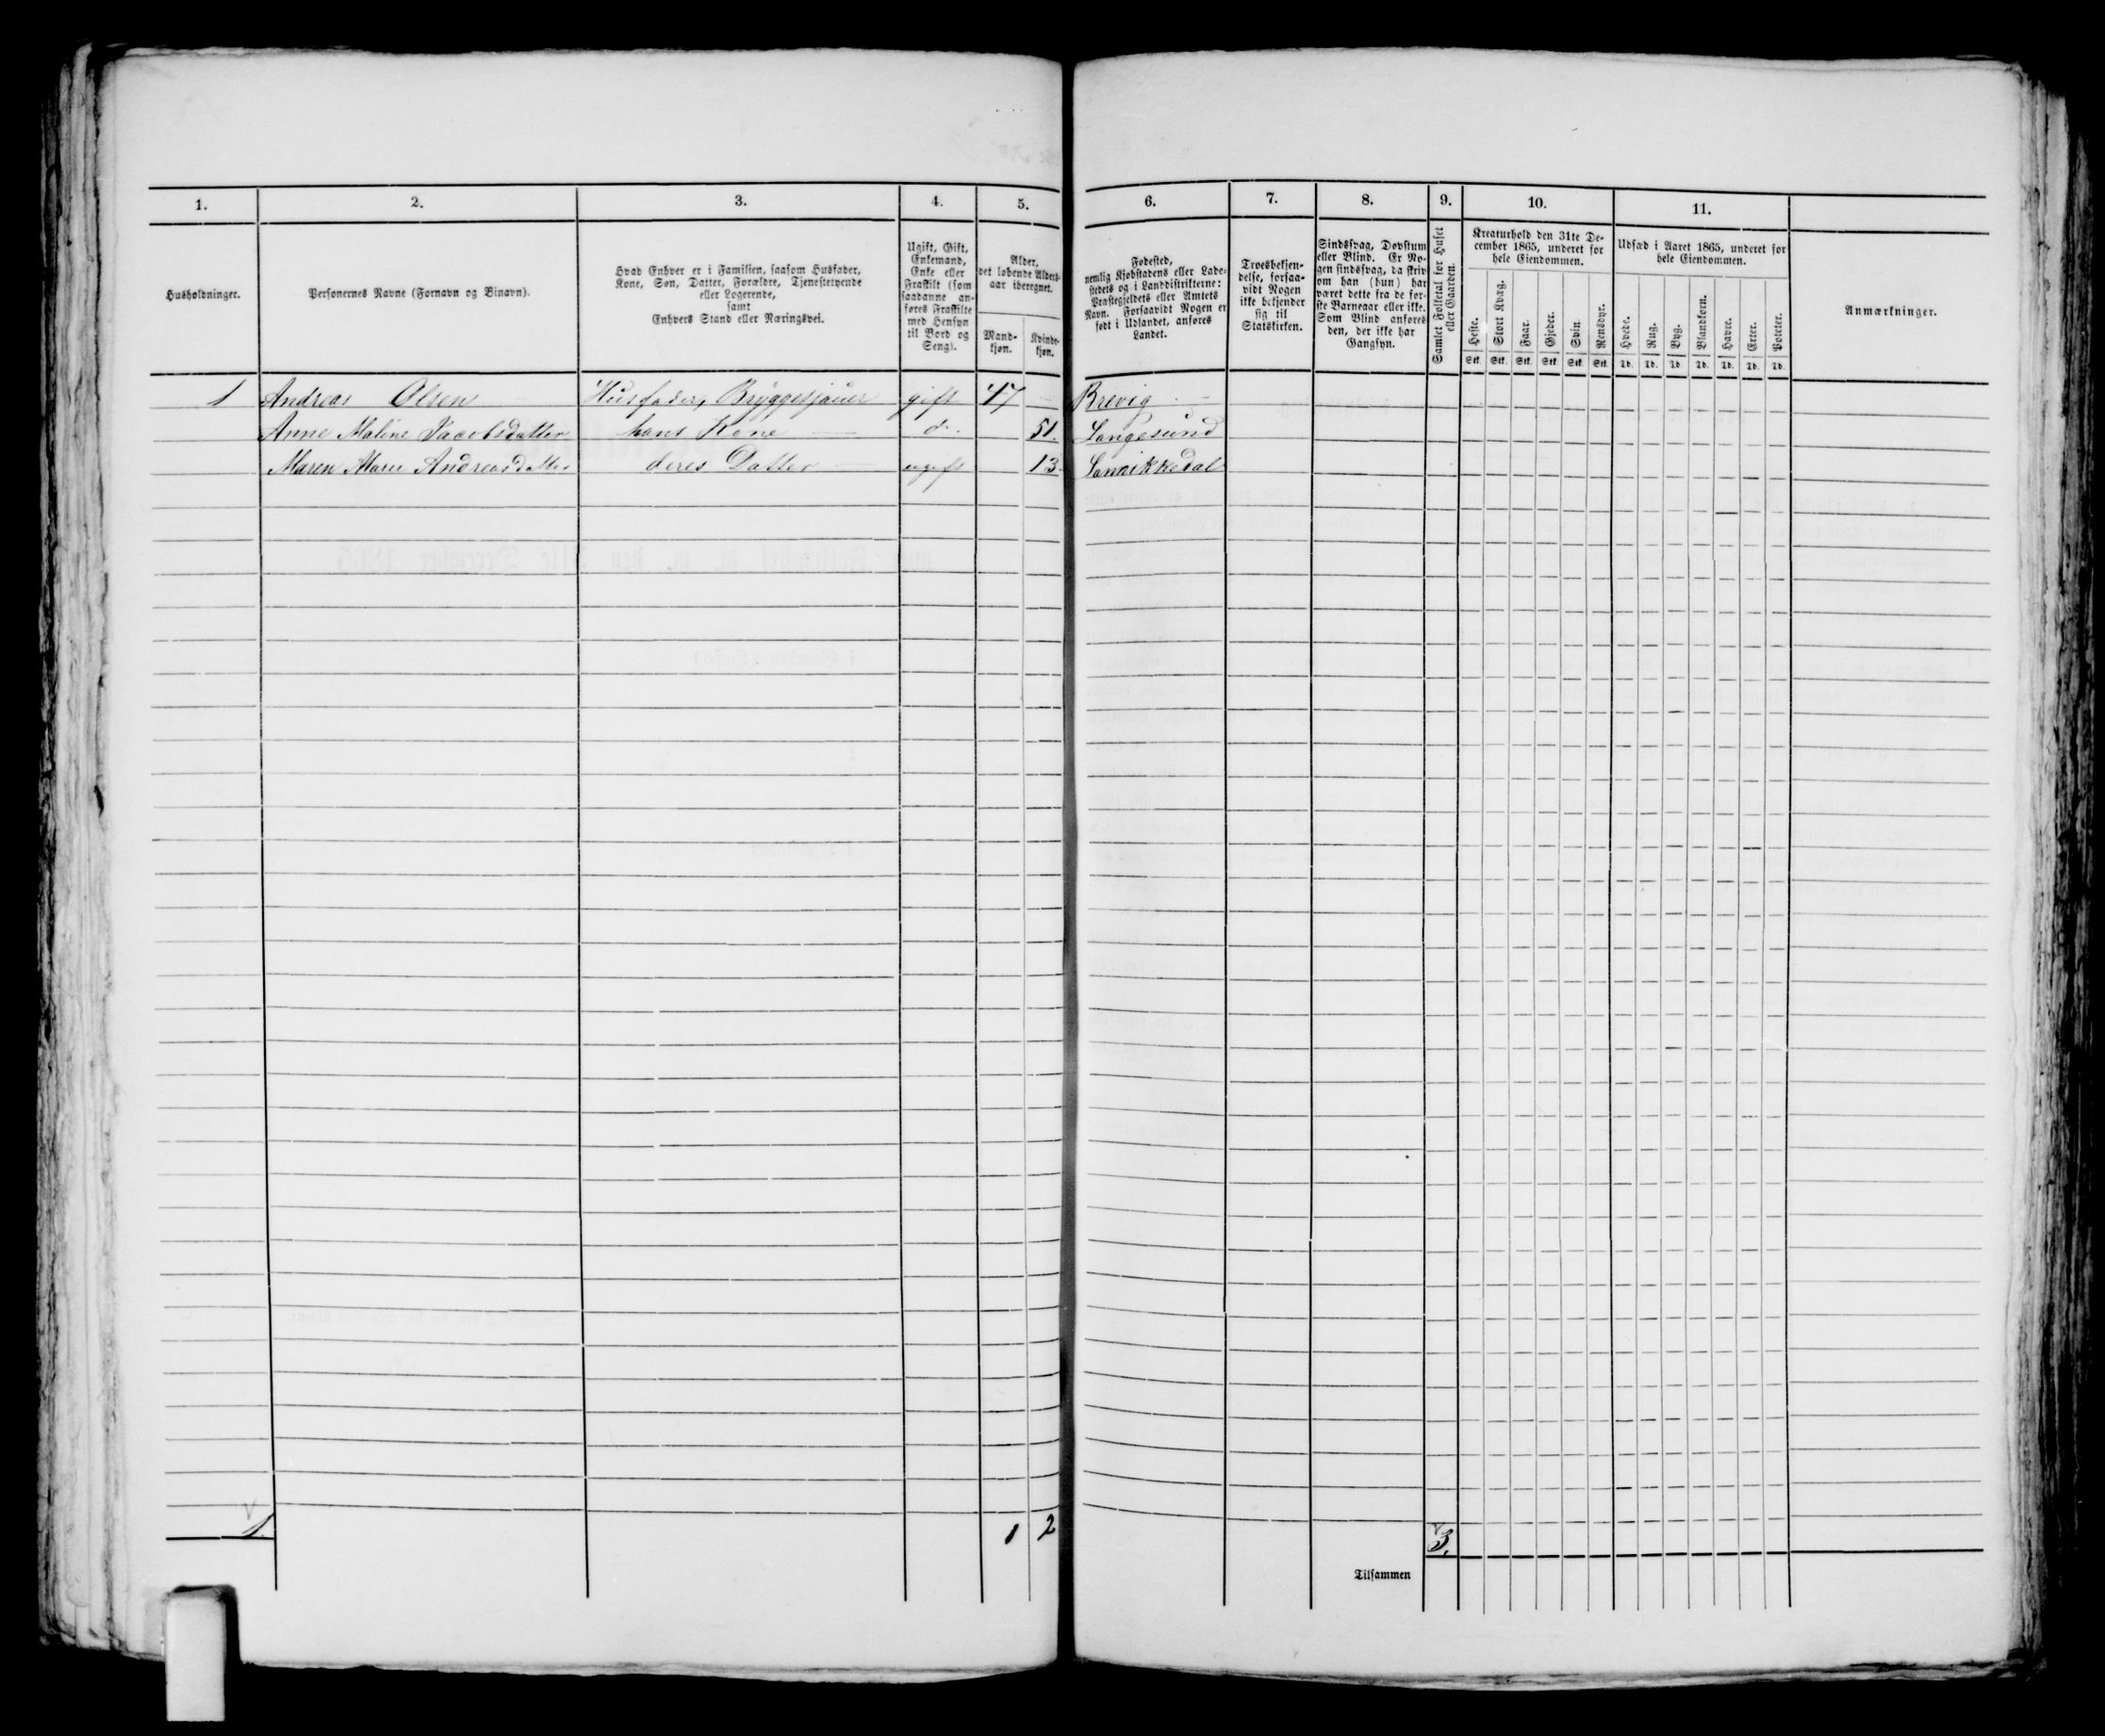 1. 2. 3. 4. 5. 6. 7. 8. 9. 10. 11.
Husholdninger.
Personernes Navne (Fornavn og Binavn).
Hvad Enhver er i Familien, saasom Husfader,
Kone, Søn, Datter, Forældre, Tjenestetyende
eller Logerende,
samt
Enhvers Stand eller Næringsvei.
Ugift, Gift,
Enkemand,
Enke eller
Fraskilt (som
saadanne an-
føres Fraskilte
med Hensyn
til Bord og
Seng).
Alder,
det løbende Alders-
aar iberegnet.
Mand-
kjøn.
Kvinde-
kjøn.
Fødested,
nemlig Kjøbstadens eller Lade-
stedets og i Landdistrikterne:
Præstegjeldets eller Amtets
Navn. Forsaavidt Nogen er
født i Udlandet, anføres
Landet.
Troesbekjen-
delse, forsaa-
vidt Nogen
ikke bekjender
sig til
Statskirken.
Sindssvag, Døvstum
eller Blind. Er No-
gen sindssvag, da skriv
om han (hun) har
været dette fra de før-
ste Barneaar eller ikke.
Som Blind anføres
den, der ikke har
Gangsyn.
Samlet Folketal for Huset
eller Gaarden.
Kreaturhold den 31te De-
cember 1865, underet for
hele Eiendommen.
Heste. Stort Kvæg. Faar. Gjeder. Svin. Rensdyr.
Stk. Stk. Stk. Stk. Stk. Stk.
Udsæd i Aaret 1865, underet for
hele Eiendommen.
Hvede. Rug. Byg. Blandkorn. Havre. Erter. Poteter.
Td. Td. Td. Td. Td. Td. Td.
Anmærkninger.
1 Andreas Olsen Husfader, Bryggesjauer gift 47 Brevig
Anne Maline Jacobsdatter hans Kone do. 51. Langesund
Maren Marie Andreasdatter deres Datter ugift 13 Sannikkedal
1. 1 2 3.
Tilsammen